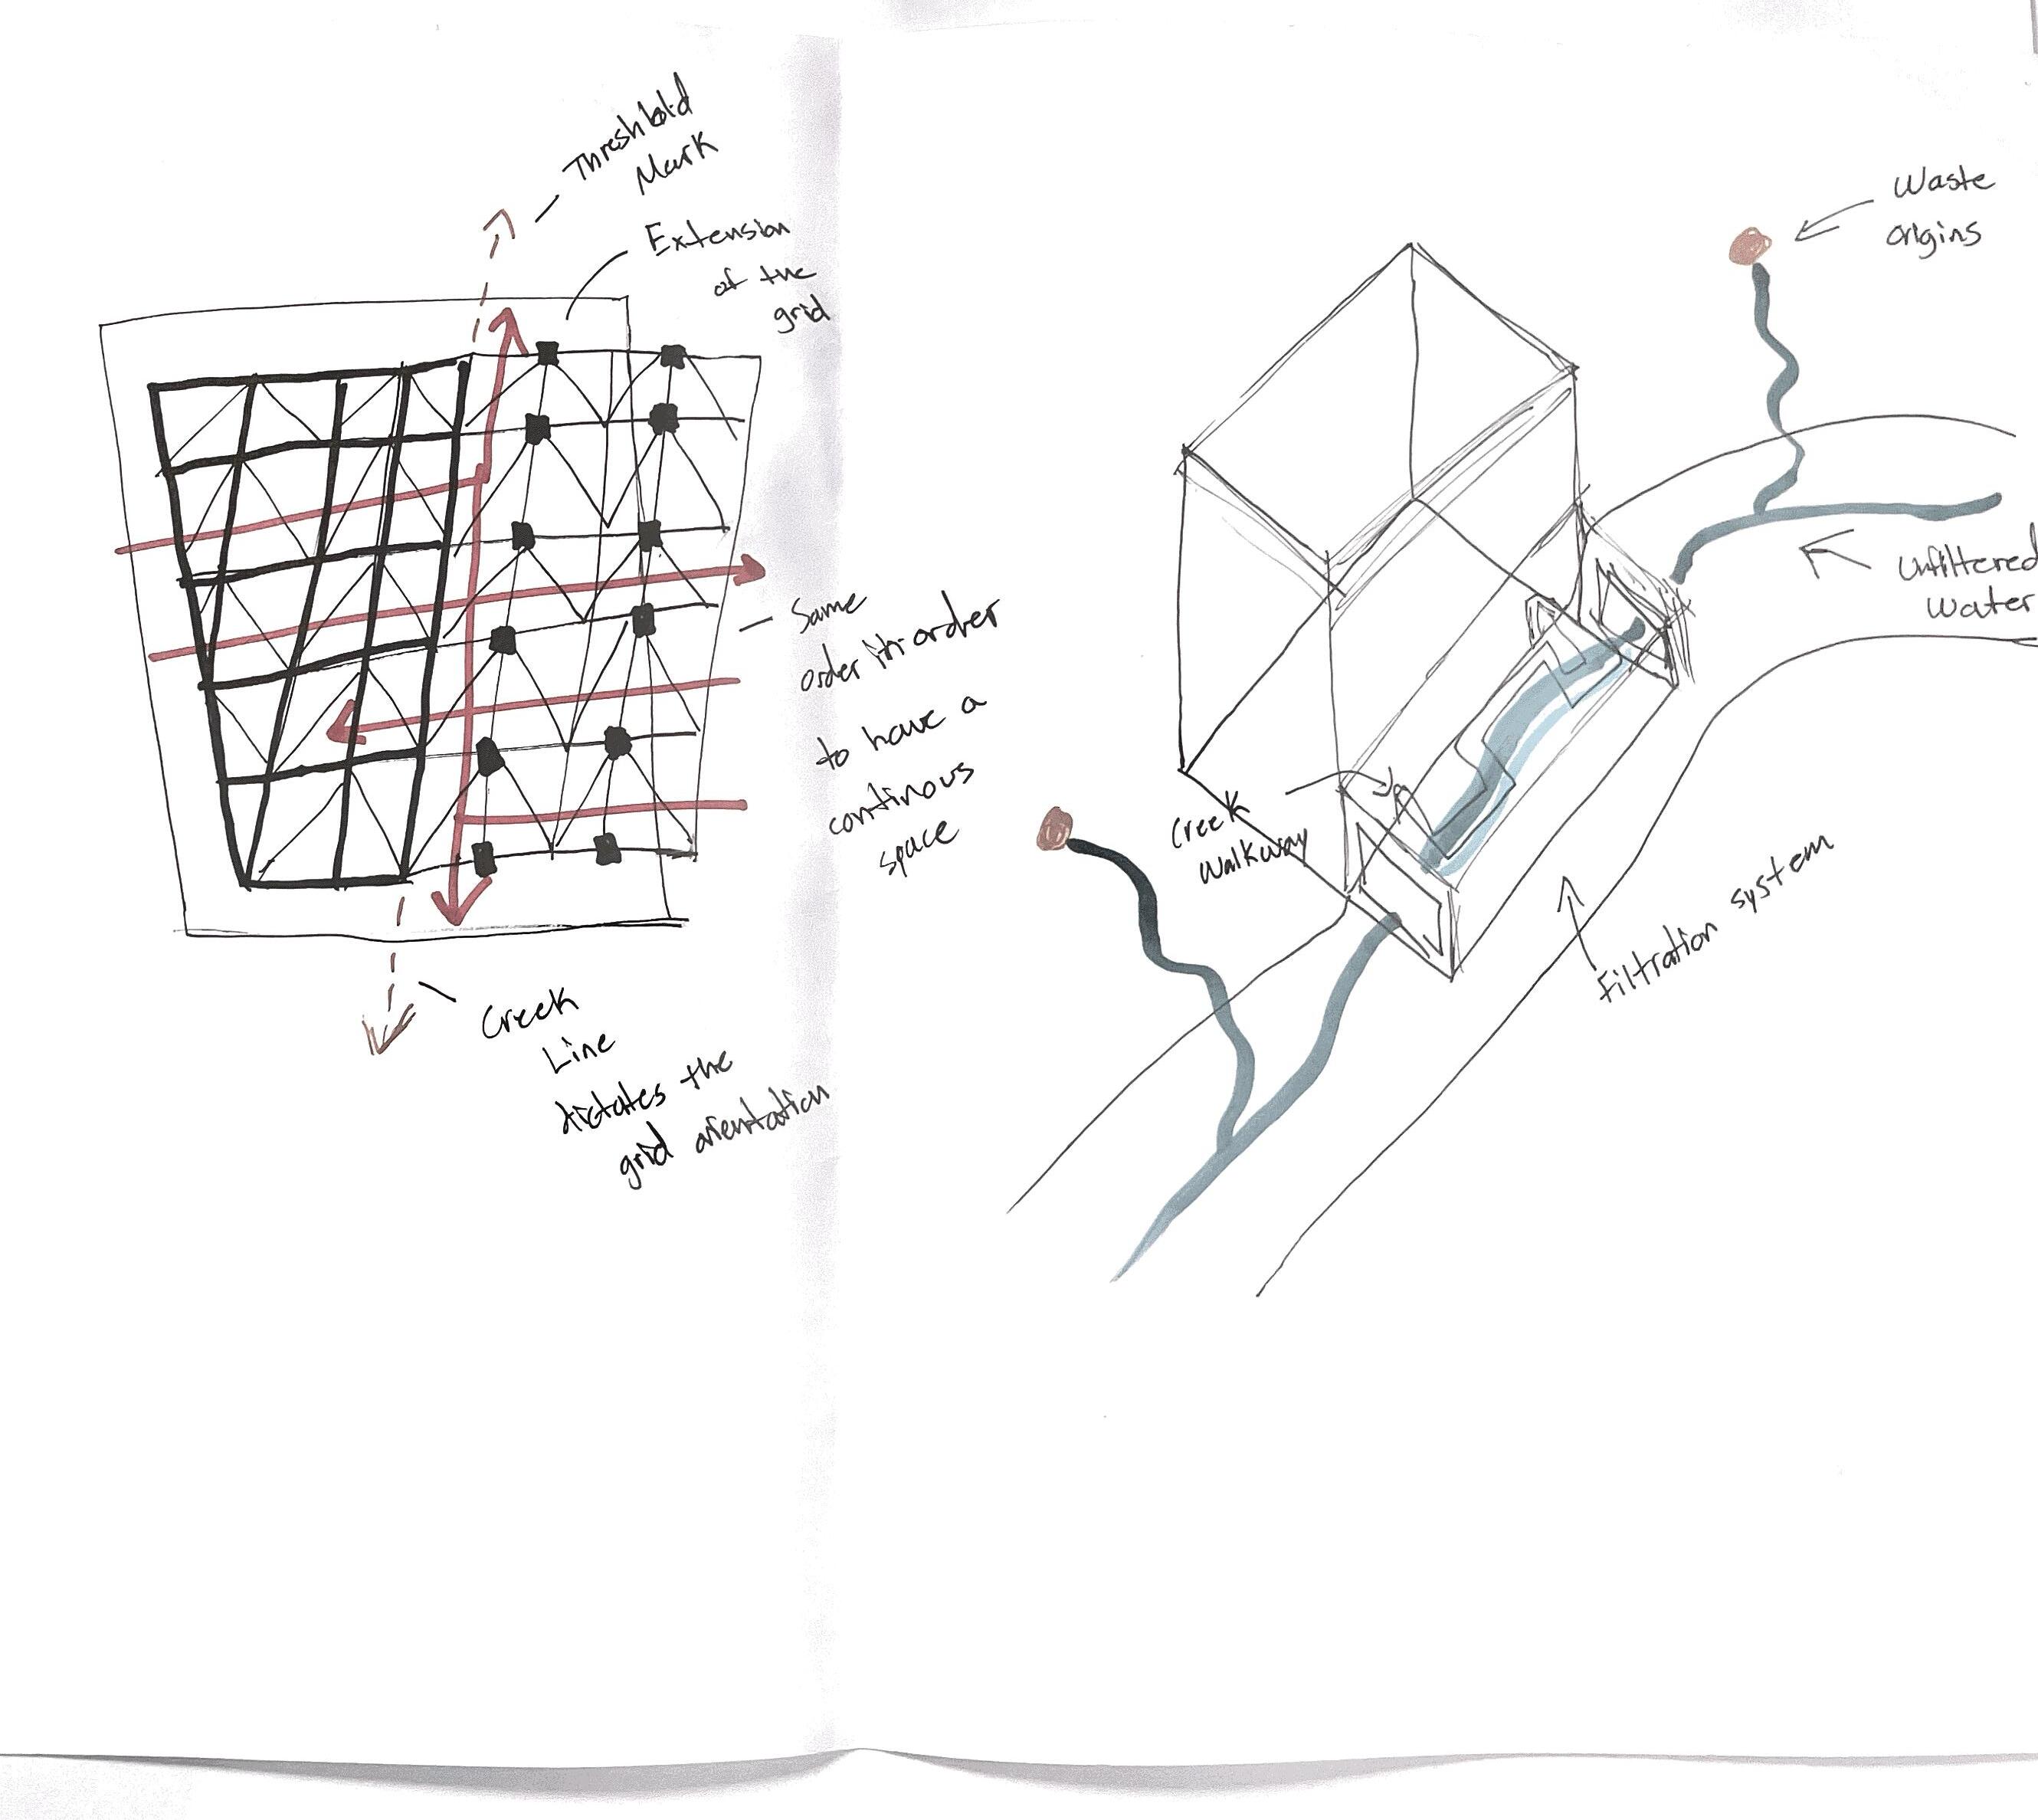 Threshhold
Mark
Extension
of the
grid
Same
order
to have a
continous
space
Creek
Line
dictates the
grid orientation
Waste
origins
Unfiltered
Water
Creek
Walkway
Filtration system